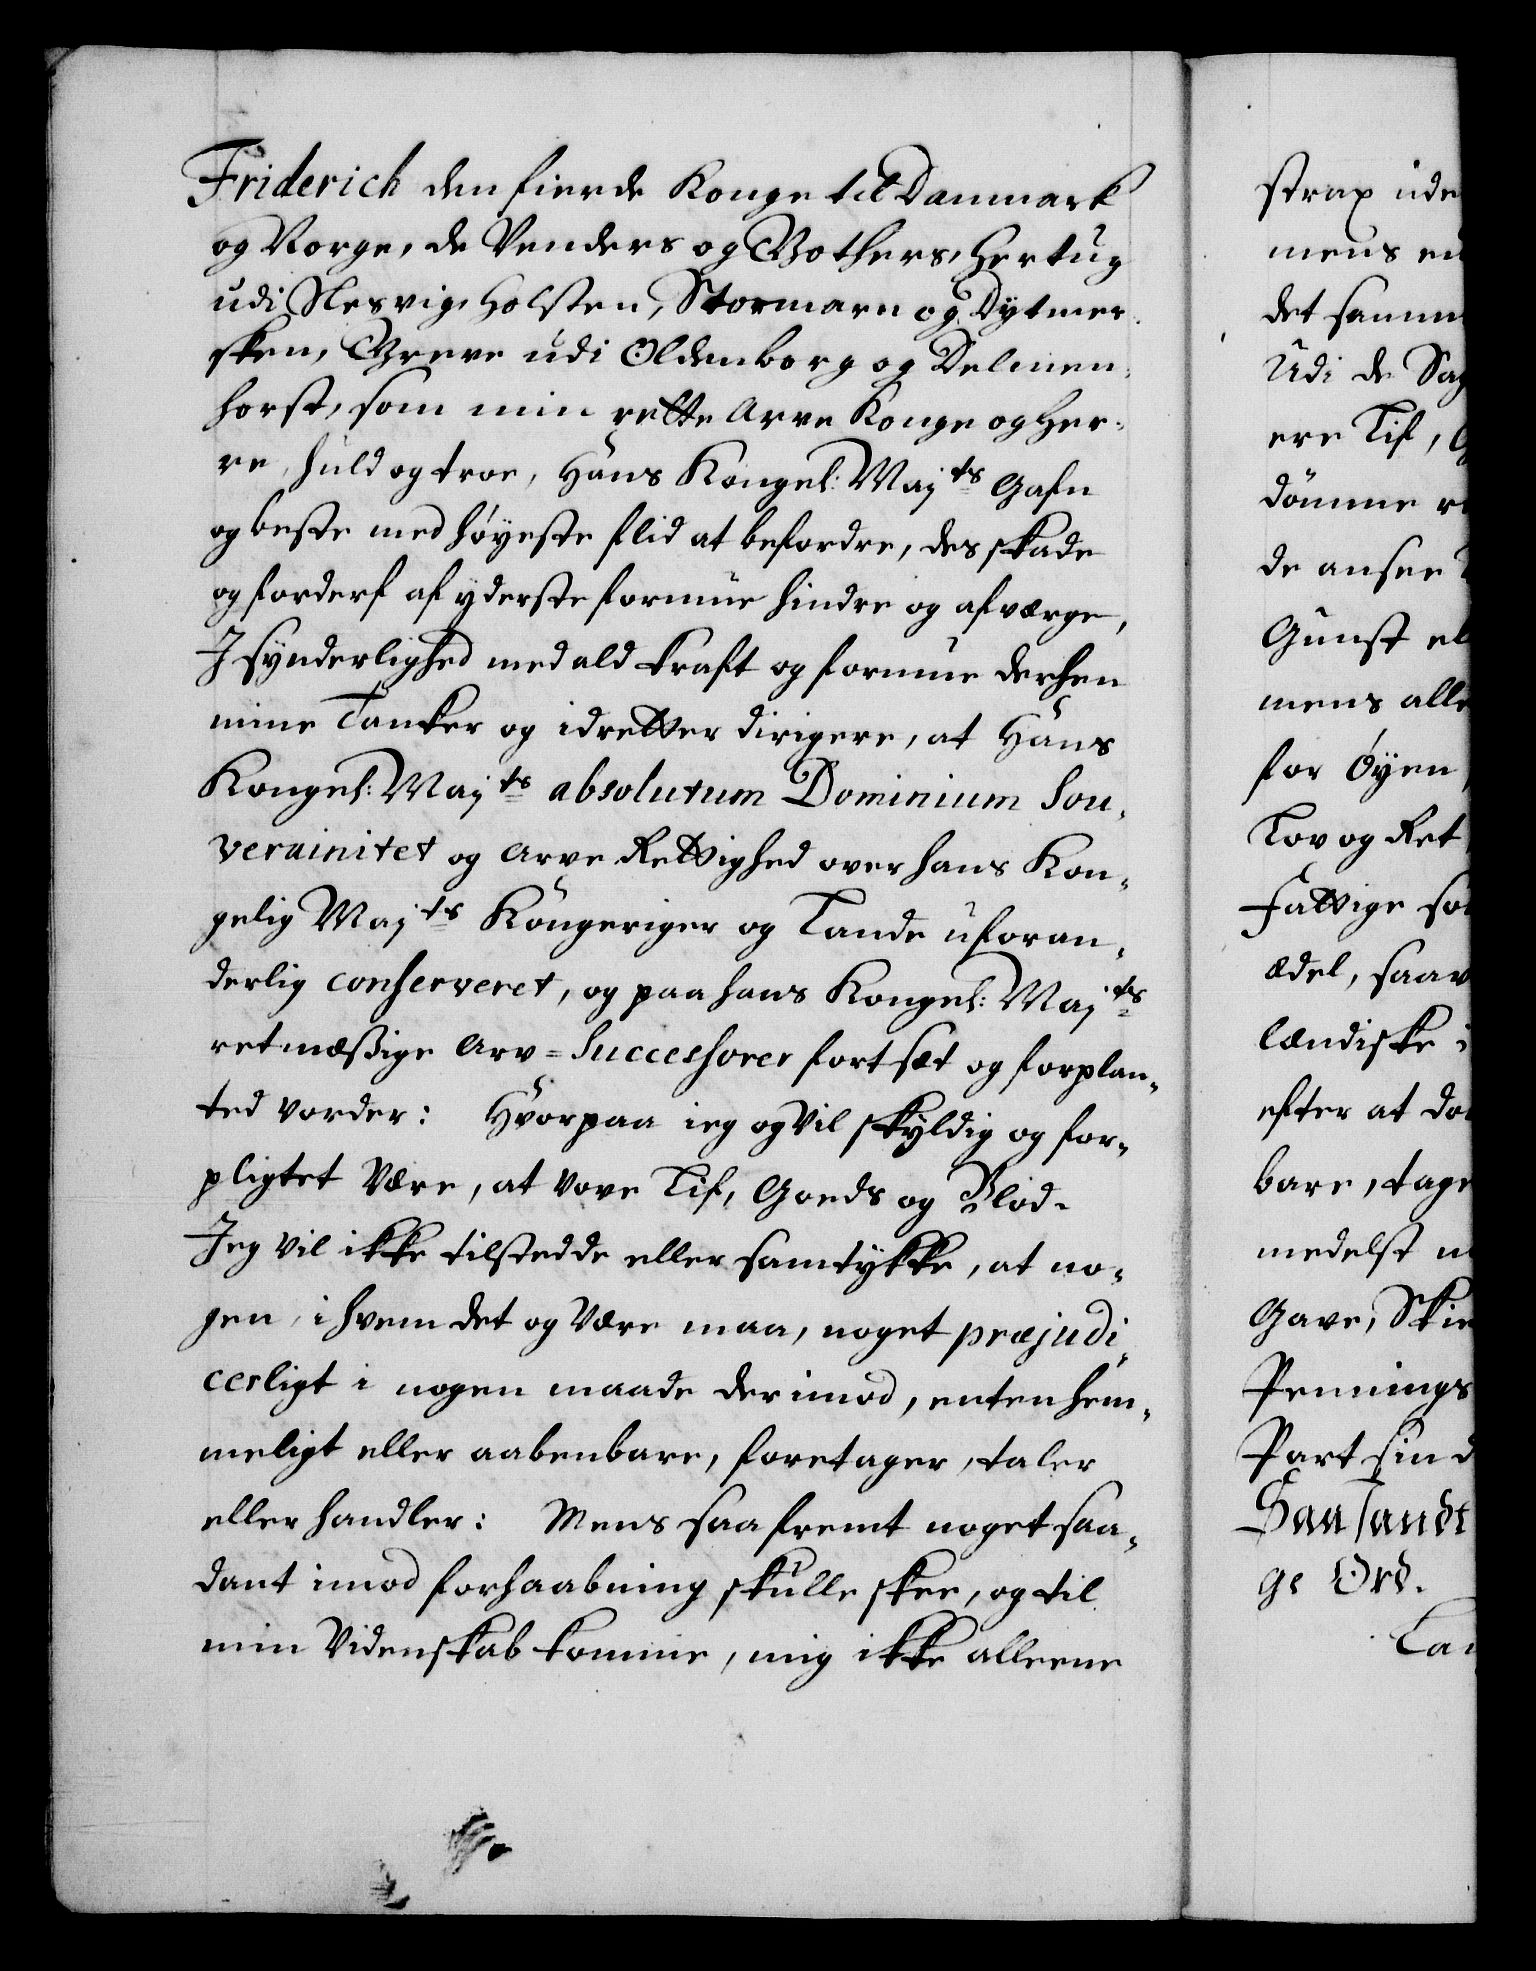 Friderich den fierde Konge til Danmark
og Norge, de Venders og Gothers, Hertug
udi Slesvig, Holsten, Stormarn og Dytmer-
sken, Greve udi Oldenborg og Delmen-
horst, som min rette Arve Konge og Her-
re, huld og troe, Hans Kongel: Maj ts Gafn
og beste med høyeste flid at befordre, des skade
og forderf af yderste formue hindre og afværge,
I synderlighed med ald kraft og formue derhen
mine Tanker og idretter dirigere, at Hans
Kongel: Maj ts absolutum Dominium Sou-
verainitet og Arve Rettighed over hans Kon-
gelig Maj ts Kongeriger og Lande uforan-
derlig conserveret, og paa hans Kongel: Maj ts
retmæssige Arv= Successorer fortsæt og forplan-
ted vorder: Hvorpaa ieg og vil skyldig og for-
pligtet være, at vove Lif, Goeds og Blod.
Jeg vil ikke tilstedde eller samtykke, at no-
gen, ihvem det og være maa, noget præjudi-
cerligt i nogen maade derimod, enten hem-
meligt eller aabenbare, foretager, taler
eller handler: Mens saafremt noget saa-
dant imod forhaabning skulle skee, og til
min Videnskab komme, mig ikke alleene
strax ude
mens en
det samm
Udi de Sag
ere Lif,
dømme re
de ansee
Gunst el
mens alle
for Øyen
Lov og Ret
Fattige so
ædel, saav
lændiske i
efter at do
bare, tage
medelst n
Gave, Skie
Pennings
Part sin d
Saa sandt
ge Ord.